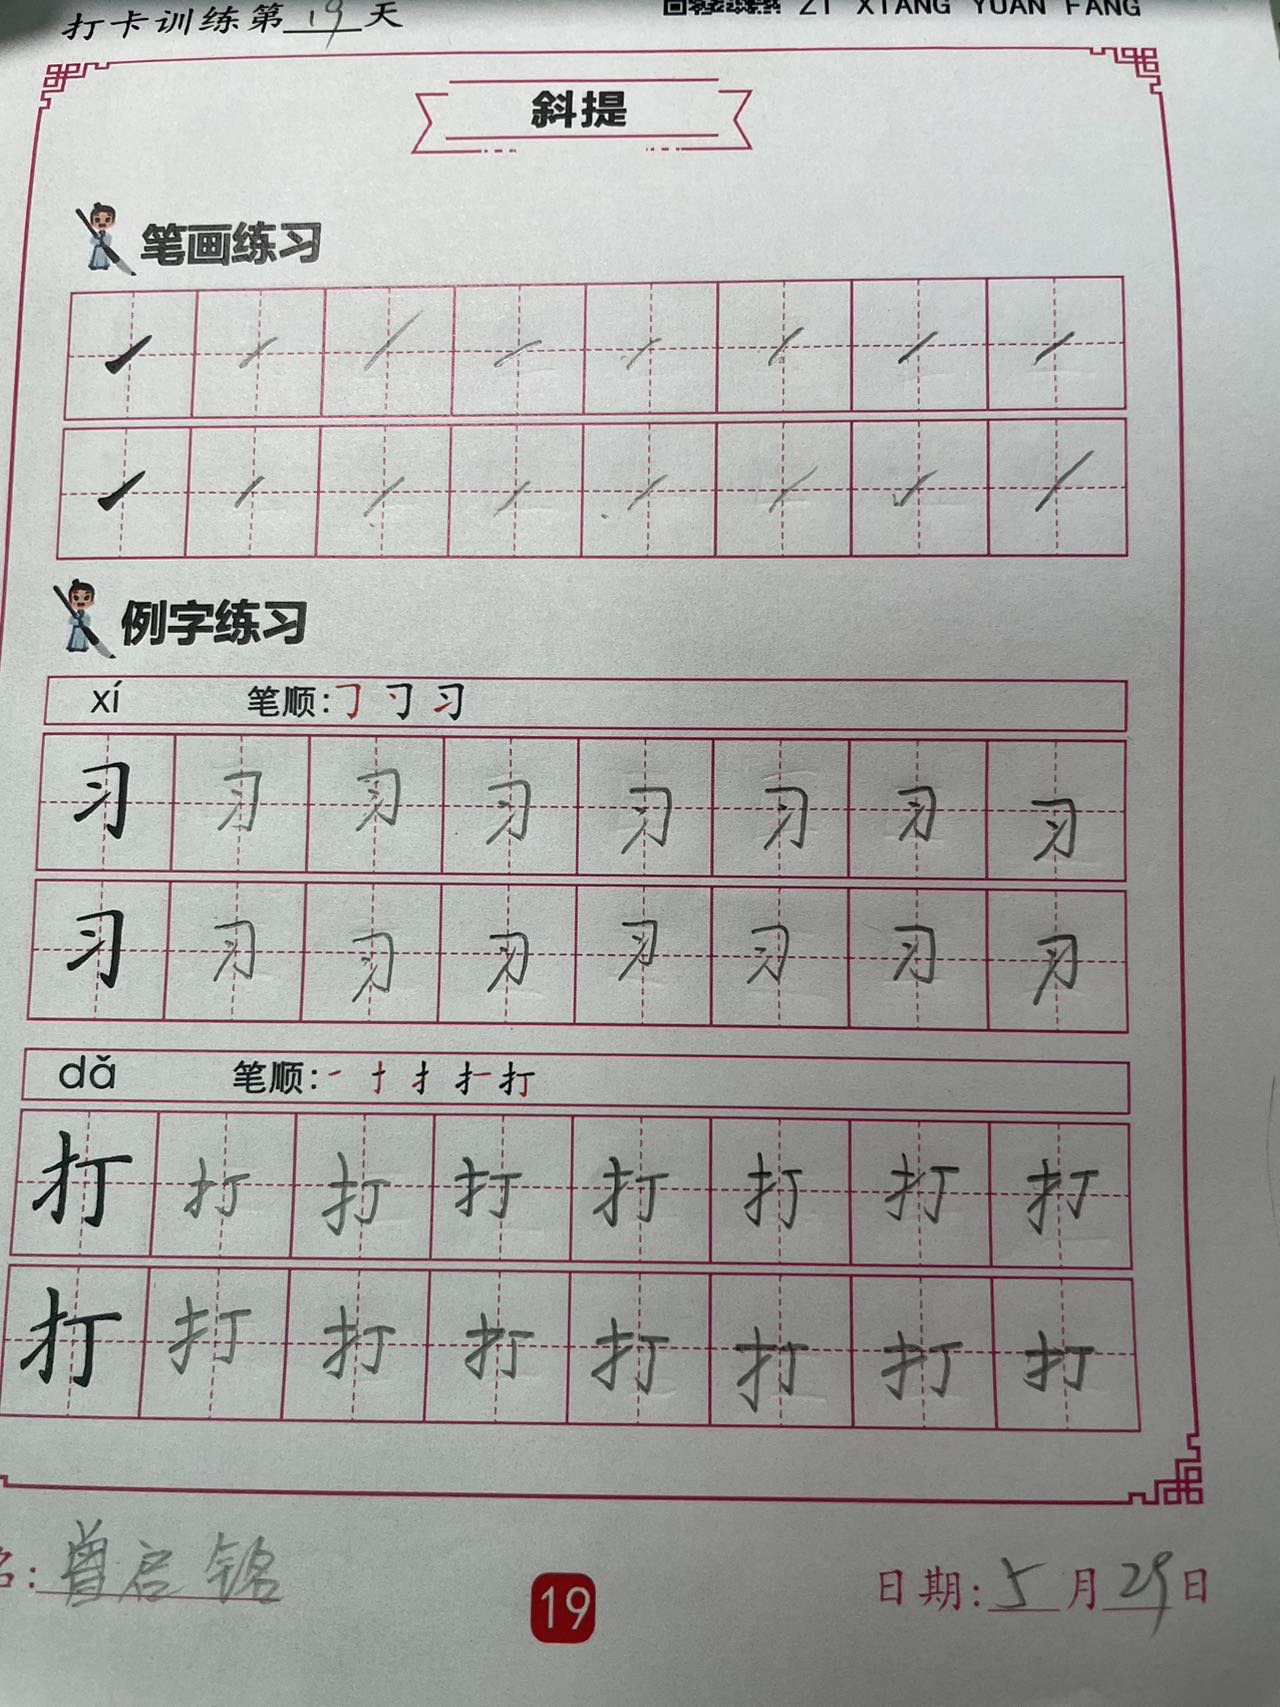 打卡训练第19天
ZI XIANG YUAN FANG
斜提
笔画练习
例字练习
xí 笔顺:
习 习 习 习 习 习 习 习
习 习 习 习 习 习 习 习
dǎ 笔顺: 一 十 扌 打
打 打 打 打 打 打 打 打
打 打 打 打 打 打 打 打
名: 曾启铭
19
日期: 5月29日